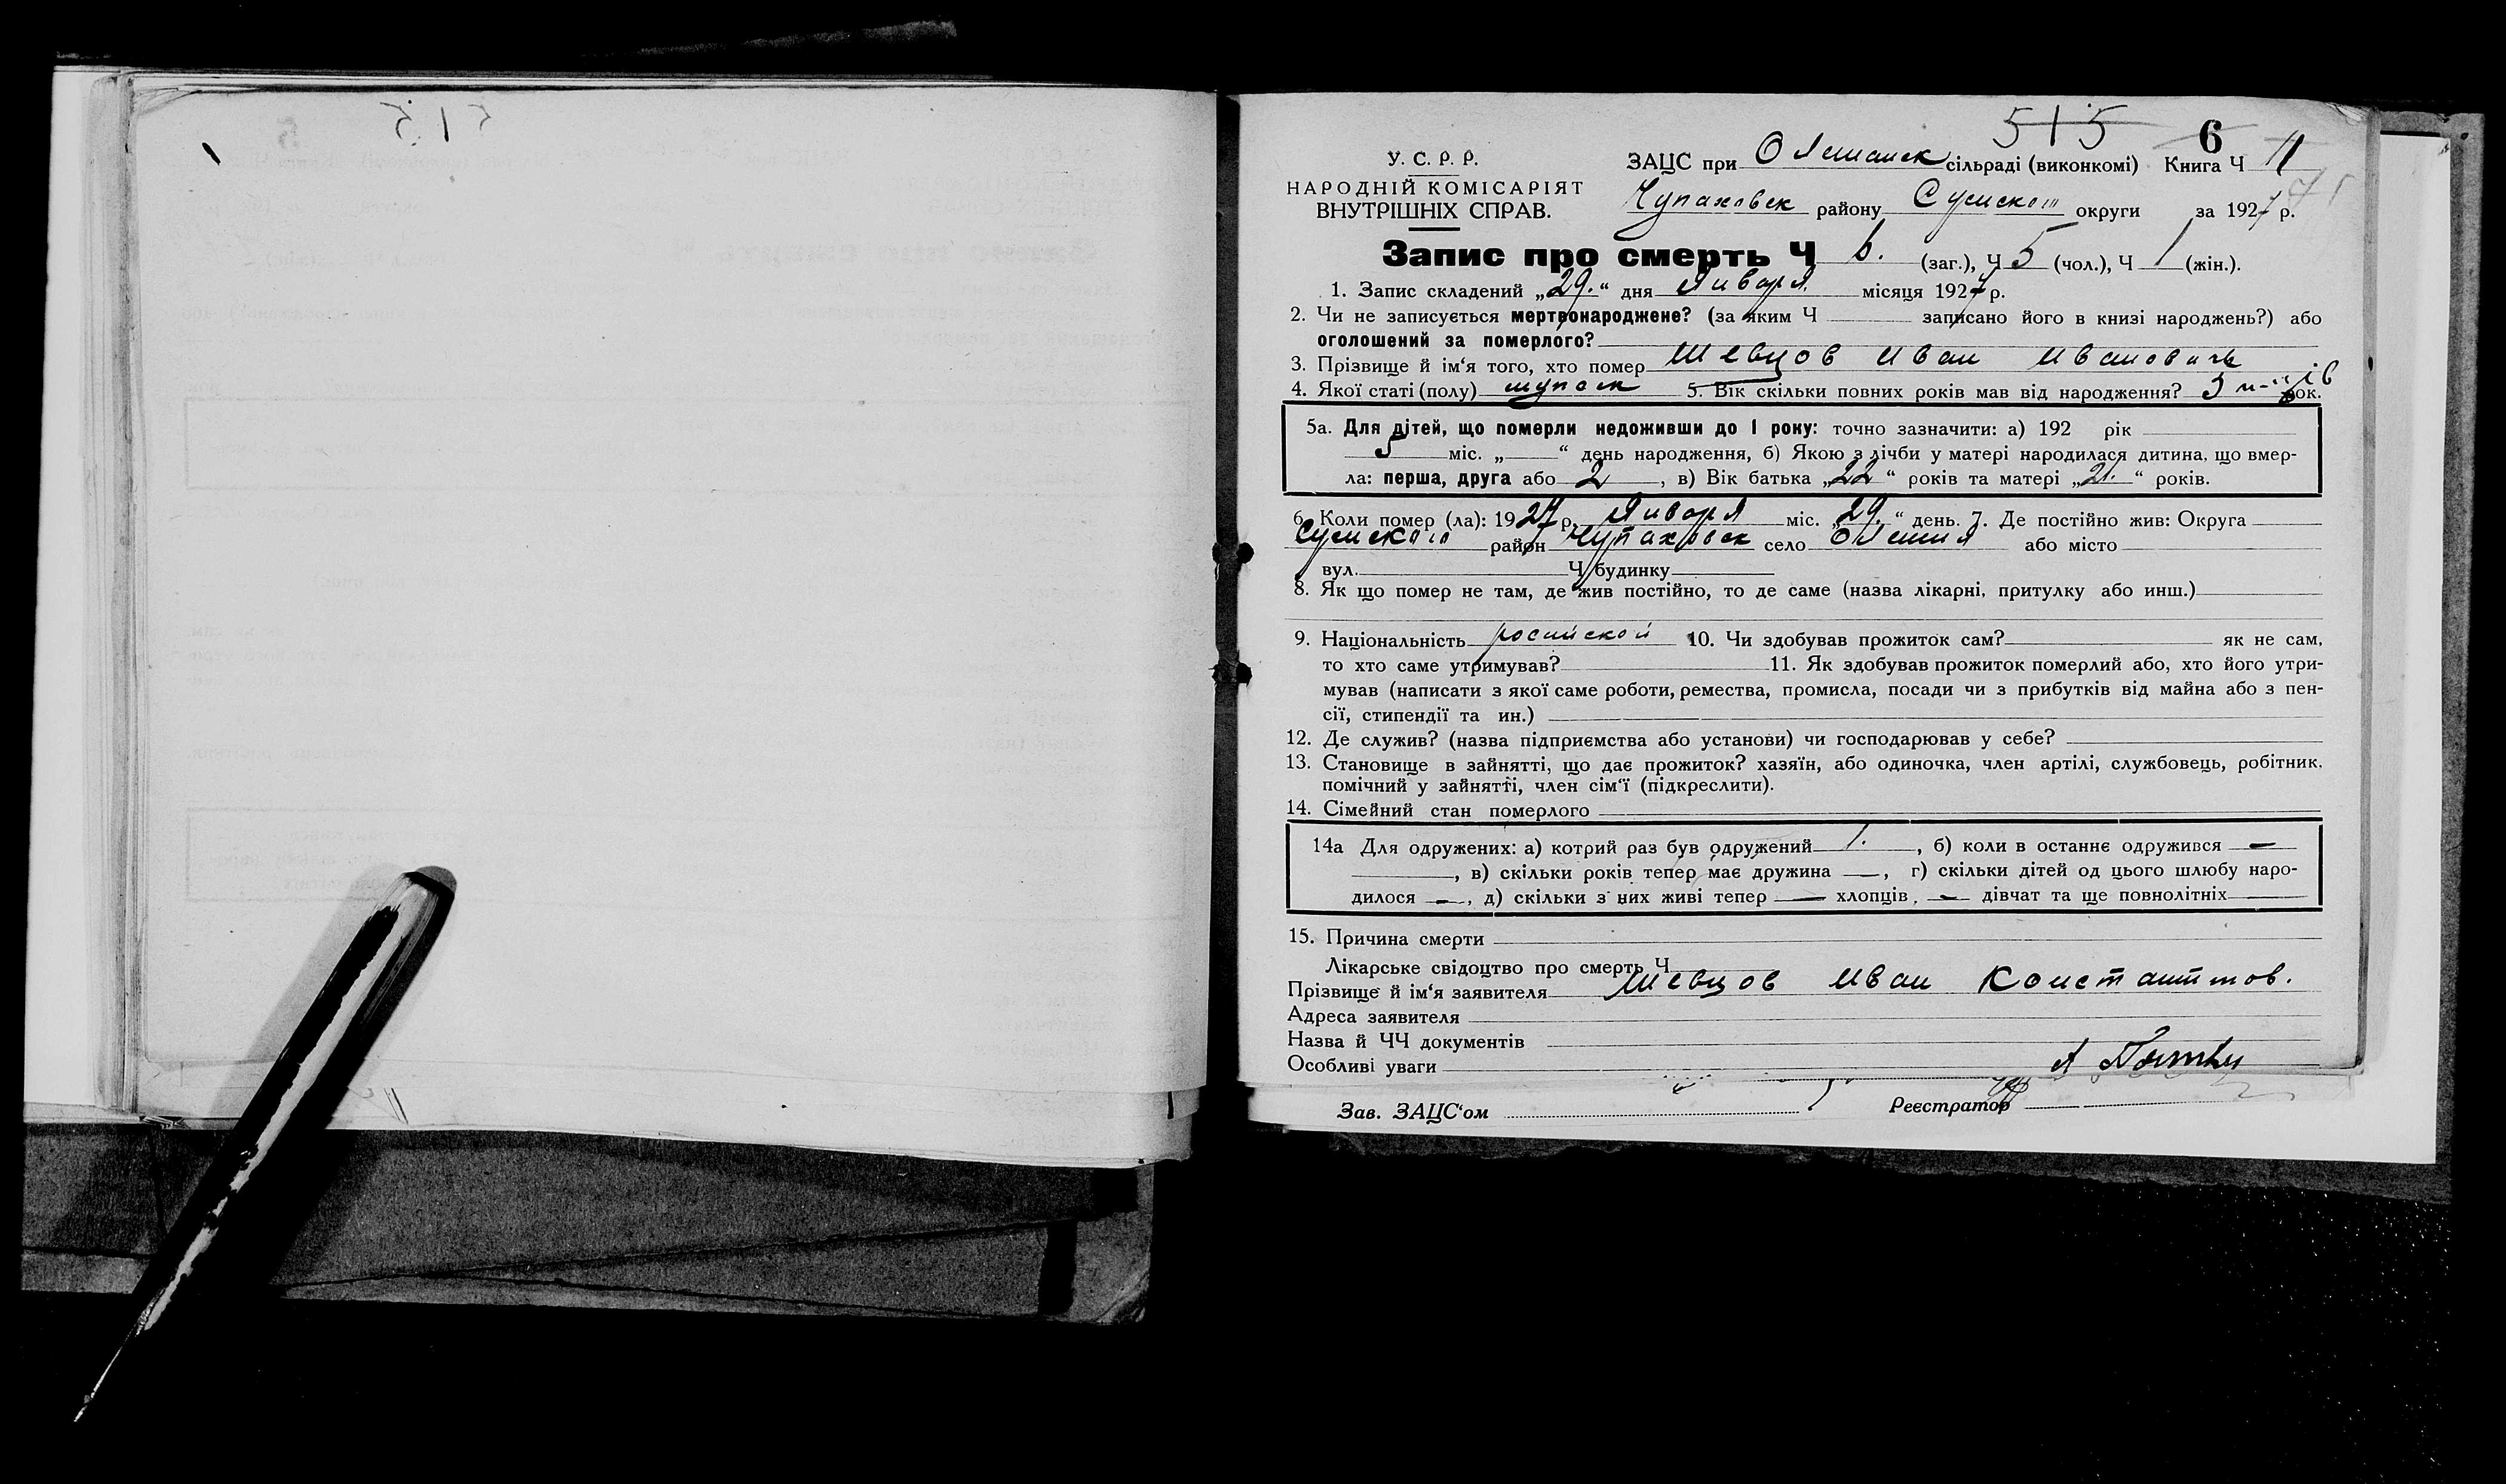 515
6
У. С. Р. Р.
НАРОДНІЙ КОМІСАРІЯТ
ВНУТРІШНІХ СПРАВ.
ЗАЦС при Олешанск сільраді (виконкомі) Книга Ч 11
Чупаховск району Сумского округи за 1927 р.
Запис про смерть Ч 6. (заг.), Ч 5 (чол.), Ч 1 (жін.).
1. Запис складений „29.“ дня Января місяця 1927 р.
2. Чи не записується мертвонароджене? (за яким Ч записано його в книзі народжень?) або
оголошений за померлого?
3. Прізвище й ім‘я того, хто помер Шевцов Иван Иванович
4. Якої статі (полу) мужск 5. Вік скільки повних років мав від народження? 3 рок.
5а. Для дітей, що померли недоживши до 1 року: точно зазначити: а) 192 рік
5 міс. „ “ день народження, б) Якою з лічби у матері народилася дитина, що вмер-
ла: перша, друга або 2, в) Вік батька „22“ років та матері „21.“ років.
6. Коли помер (ла): 1927 р. Января міс. „29.“ день. 7. Де постійно жив: Округа
Сумского район Чупаховск село Олешня або місто
вул. Ч будинку
8. Як що помер не там, де жив постійно, то де саме (назва лікарні, притулку або инш.)
9. Національність росийской 10. Чи здобував прожиток сам? як не сам,
то хто саме утримував? 11. Як здобував прожиток померлий або, хто його утри-
мував (написати з якої саме роботи, ремества, промисла, посади чи з прибутків від майна або з пен-
сії, стипендії та ин.)
12. Де служив? (назва підприємства або установи) чи господарював у себе?
13. Становище в зайнятті, що дає прожиток? хазяїн, або одиночка, член артілі, службовець, робітник,
помічний у зайнятті, член сім‘ї (підкреслити).
14. Сімейний стан померлого
14а Для одружених: а) котрий раз був одружений 1. , б) коли в останнє одружився —
, в) скільки років тепер має дружина —, г) скільки дітей од цього шлюбу наро-
дилося —, д) скільки з них живі тепер — хлопців, — дівчат та ще повнолітніх
15. Причина смерти
Лікарське свідоцтво про смерть Ч
Прізвище й ім‘я заявителя Шевцов Иван Константинов.
Адреса заявителя
Назва й ЧЧ документів
Особливі уваги
Зав. ЗАЦС‘ом Реєстратор